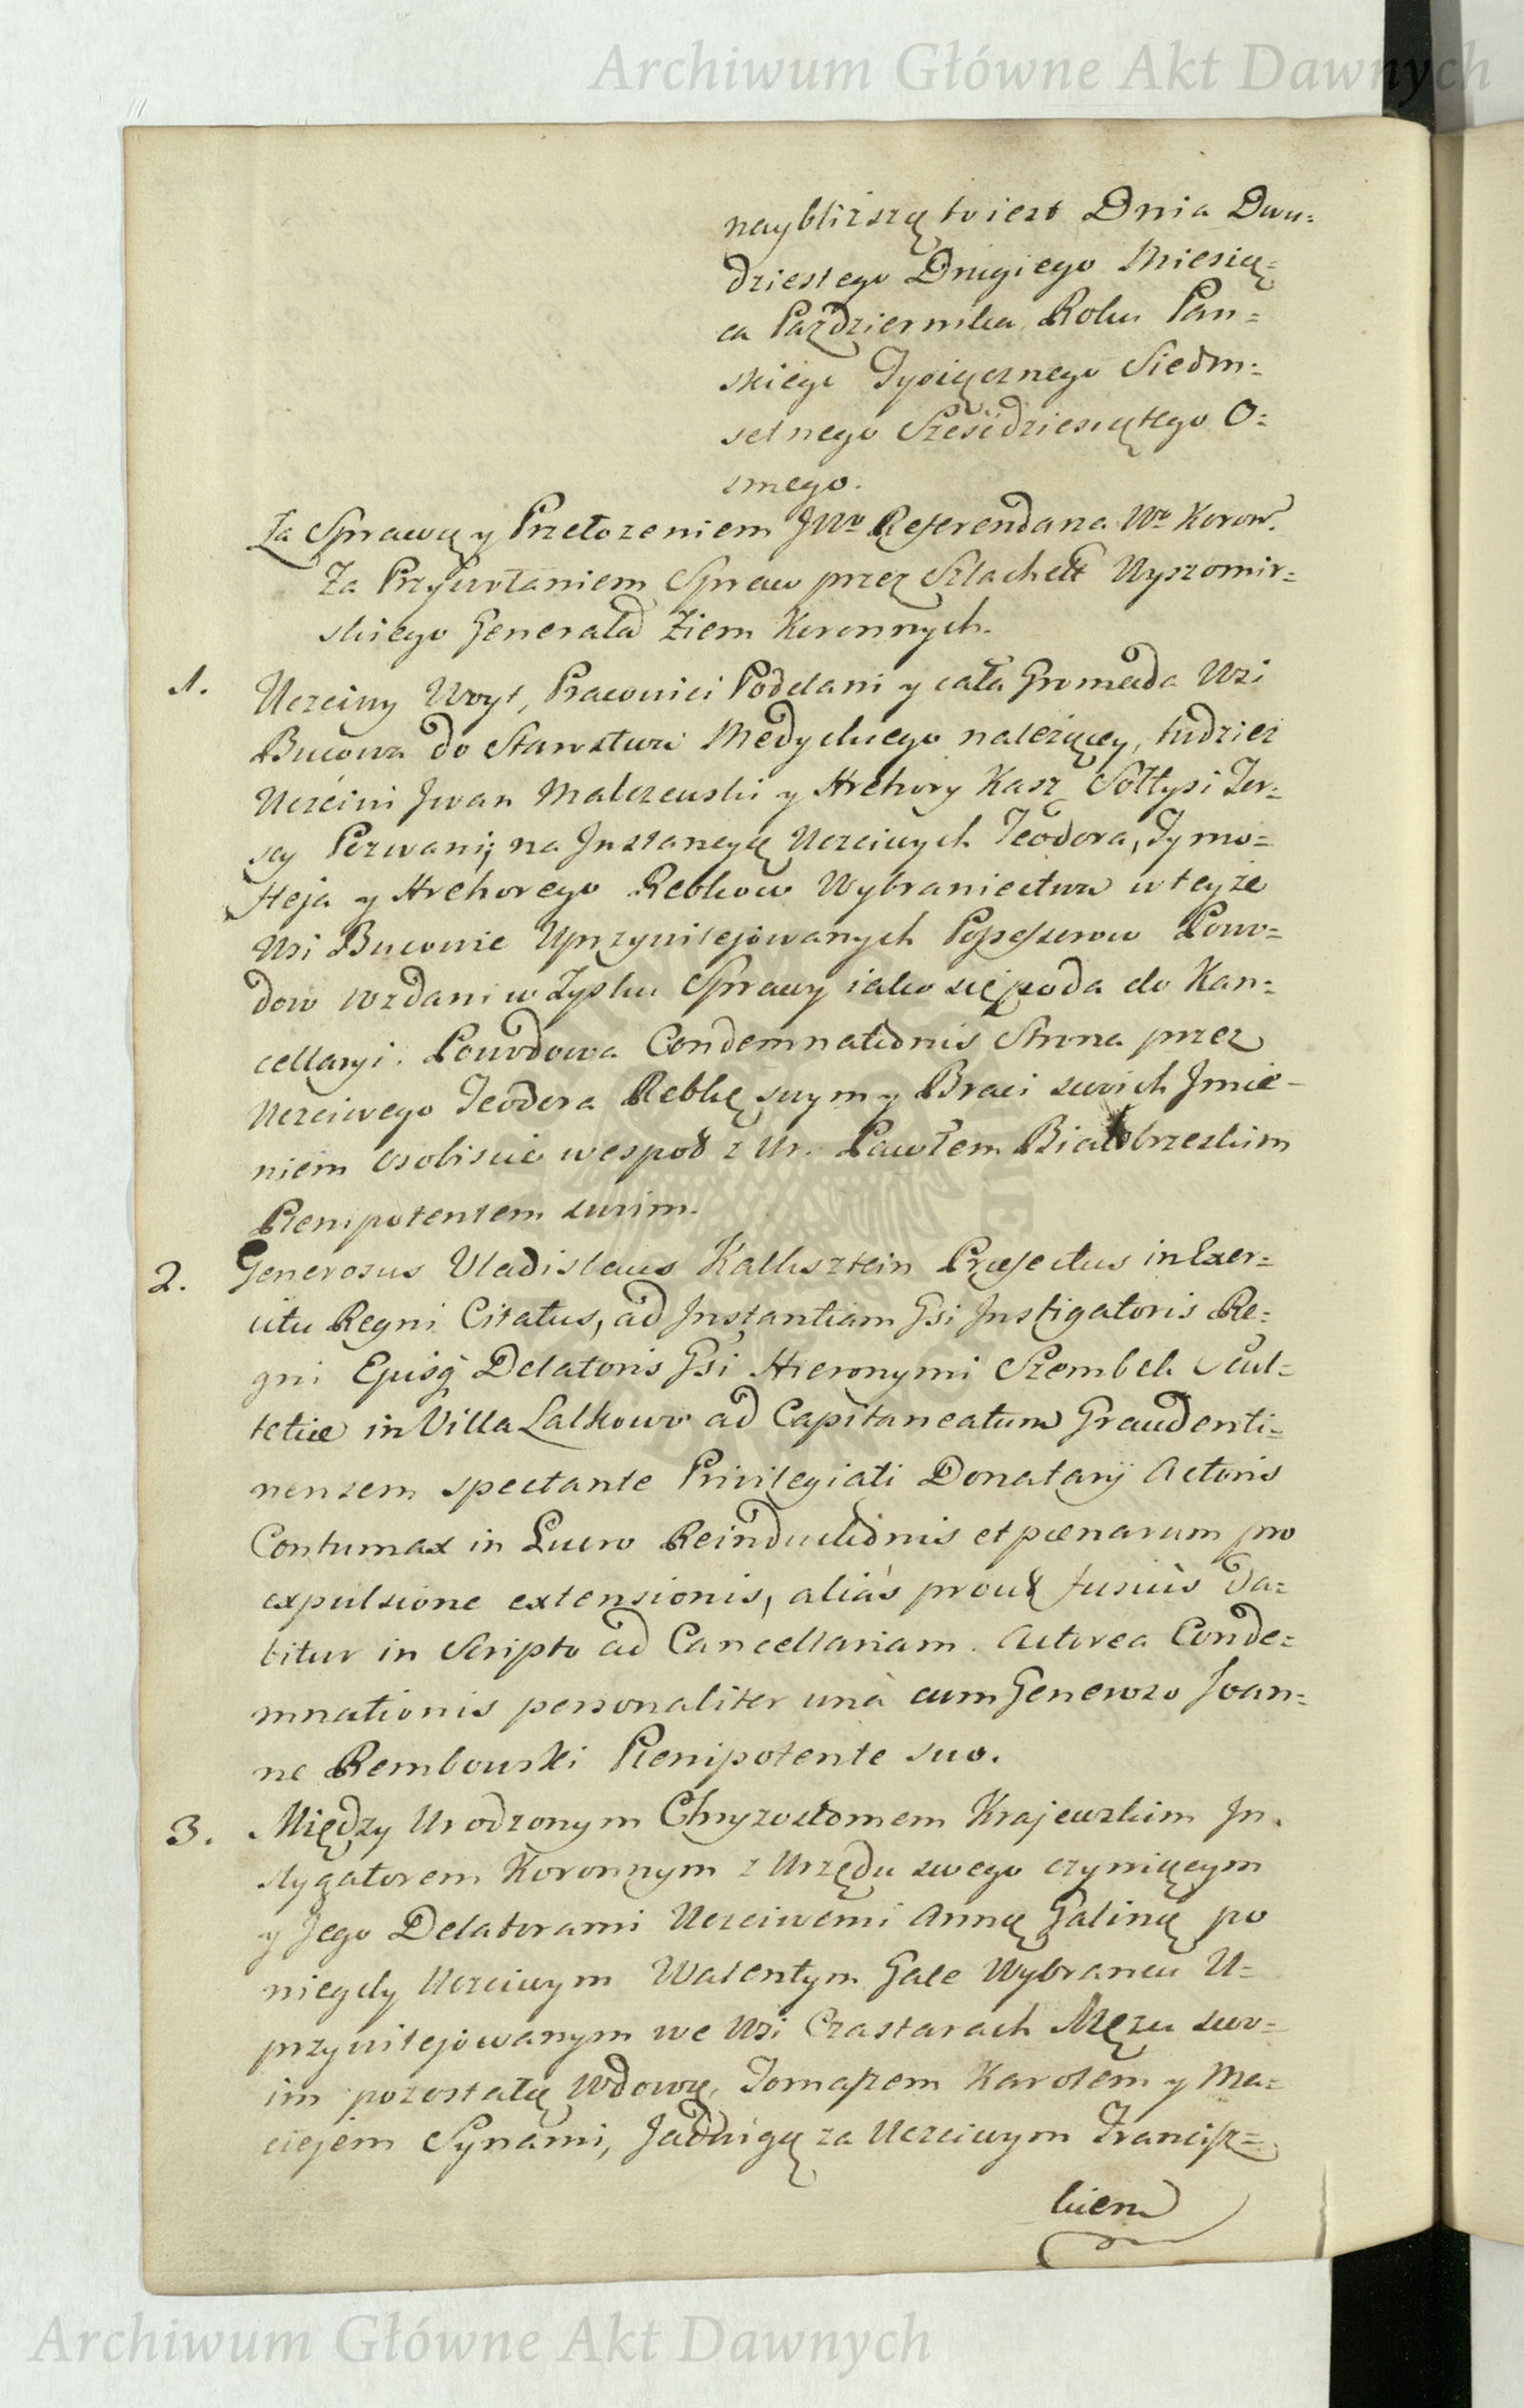 Archiwum Główne Akt Dawnych
nayblizszą to iest Dnia Dwu=
dziestego Drugiego Miesią=
ca Pazdziernika Roku Pan=
skiego Tysiącznego Siedm=
setnego Sześćdziesiątego O=
smego.
Za Sprawą y Przełozeniem JWo Referendarza Wo Koron.
Za Przywołaniem Spraw przez Szlachett Wyszomir=
skiego Generała Ziem Koronnych.
1. Uczciwy Woyt, Pracowici Poddani y cała Gromada Wsi
Bucowa do Starostwa Medyckiego nalezący, tudziez
Uczciwi Jwan Malczewski y Hrehory Kasz Sołtysi Ter=
scy Pozwani; na Jnstancyą Uczciwych Teodora, Tymo=
steja y Hrehorego Rebkow Wybraniectwa w teyze
Wsi Bucowie Uprzywilejowanych Possessorow Powo=
dow wzdani w Zysku Sprawy iako się poda do Kan=
cellaryi. Powodowa Condemnationis Strona przez
Uczciwego Teodora Rebkę swym y Braci swoich Jmie-
niem osobiscie wespoł z Ur. Pawłem Białobrzeskim
Plenipotentem swoim.
2. Generosus Vladislaus Kallksztein Præfectus in Exer=
citu Regni Citatus, ad Jnstantiam Gsi Jnstigatoris Re=
gni Ejusq Delatoris Gsi Hieronymi Szembek Scul=
tetiæ in Villa Lalkowo ad Capitaneatum Graudenti=
nensem spectante Privilegiati Donatarÿ Actoris
Contumax in Lucro Reinductionis et pœnarum pro
expulsione extensionis, aliàs prout fusiùs da=
bitur in Scripto ad Cancellariam. Actorea Conde=
mnationis personaliter unà cum Generoso Joan=
ne Rembowski Plenipotente suo.
3. Między Urodzonym Chryzostomem Krajewskim Jn.
stygatorem Koronnym z Urzędu swego czyniącym
y Jego Delatorami Uczciwemi Anną Galiną po
niegdy Uczciwym Walentym Gale Wybrancu U=
przywilejowanym we Wsi Czastarach Męzu swo=
im pozostałą Wdową, Tomaszem Karolem y Ma=
ciejem Synami, Jadwigą za Uczciwym Francisz=
kiem
Archiwum Główne Akt Dawnych